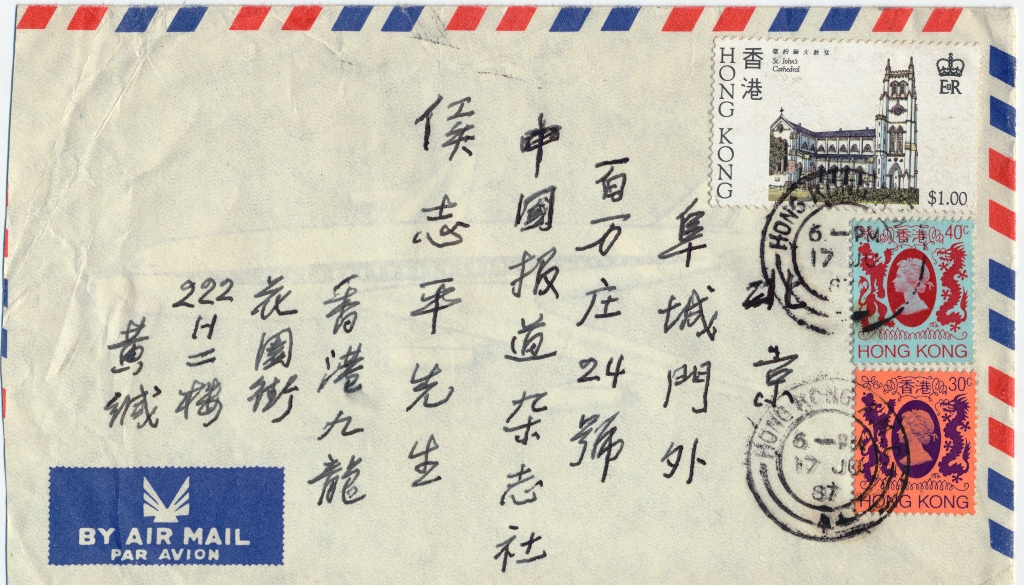 北京
阜城門外
百万庄24號
中國报道杂志社
侯志平先生
香港九龍
花園街
222
H二楼
黄缄
香港
HONG KONG
聖約翰大教堂
St. John's
Cathedral
EIIR
$1.00
香港
40c
HONG KONG
香港
30c
HONG KONG
HONG KONG
6 — PM
17 JU
HONG KONG
6 — PM
17 JU
87
BY AIR MAIL
PAR AVION